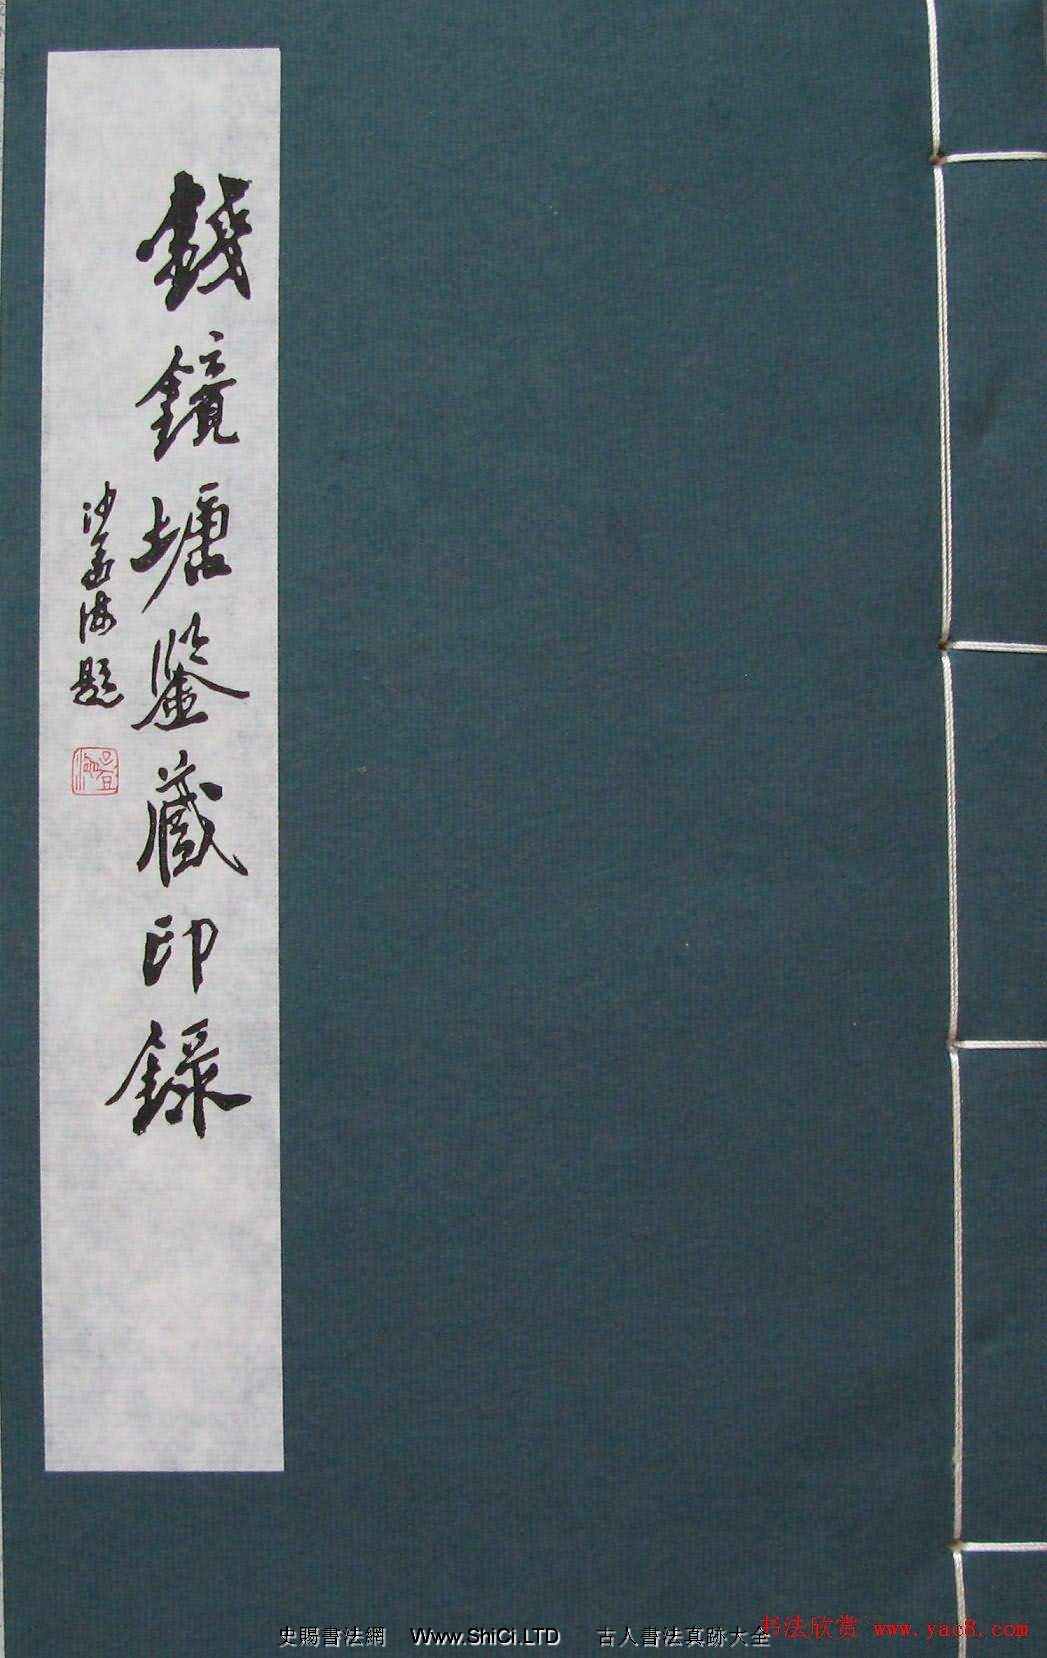 錢鏡塘鑒藏印錄
沙孟海題
史賜書法網 Www.ShiCi.LTD 古人書法真跡大全
书法欣赏 www.yac8.com